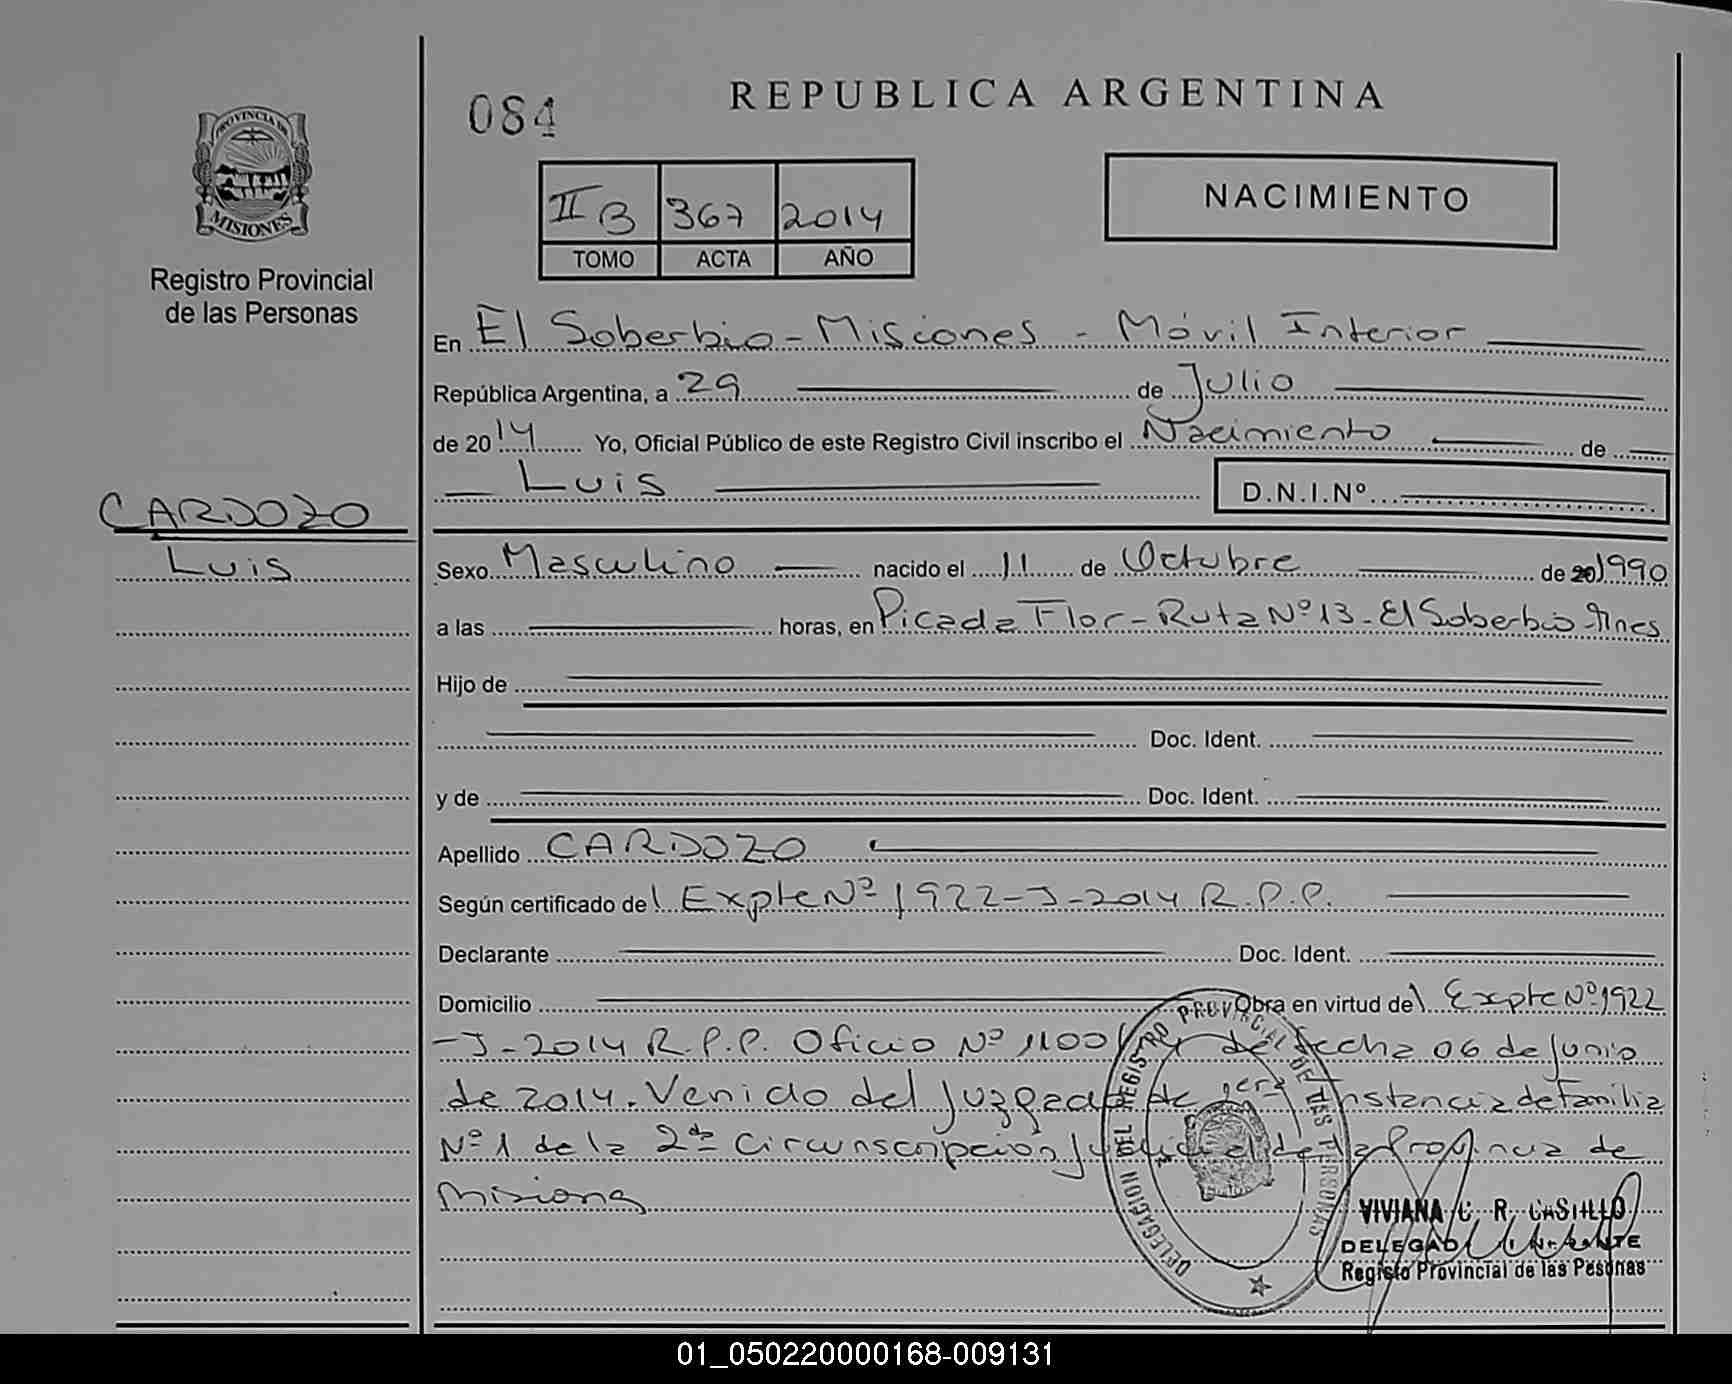 084
REPUBLICA ARGENTINA
PROVINCIA DE
MISIONES
Registro Provincial
de las Personas
II B 367 2014
TOMO ACTA AÑO
NACIMIENTO
En El Soberbio - Misiones - Móvil Interior
República Argentina, a 29 de Julio
de 2014 Yo, Oficial Público de este Registro Civil inscribo el Nacimiento de
Luis D.N.I.Nº
CARDOZO
Luis
Sexo Masculino nacido el 11 de Octubre de 20 1990
a las horas, en Picada Flor - Ruta Nº 13 - El Soberbio - Mnes
Hijo de
Doc. Ident.
y de Doc. Ident.
Apellido CARDOZO
Según certificado del Expte Nº 1922-J-2014 R.P.P.
Declarante Doc. Ident.
Domicilio Obra en virtud del Expte Nº 1922
-J-2014 R.P.P. Oficio Nº 1100/14 de fecha 06 de Junio
de 2014. Venido del Juzgado de 1era Instancia de Familia
Nº 1 de la 2da Circunscripción Judicial de la Provincia de
Misiones
DELEGACION DEL REGISTRO PROVINCIAL DE LAS PERSONAS
VIVIANA C. R. CASTILLO
Registo Provincial de las Pesonas
01_050220000168-009131